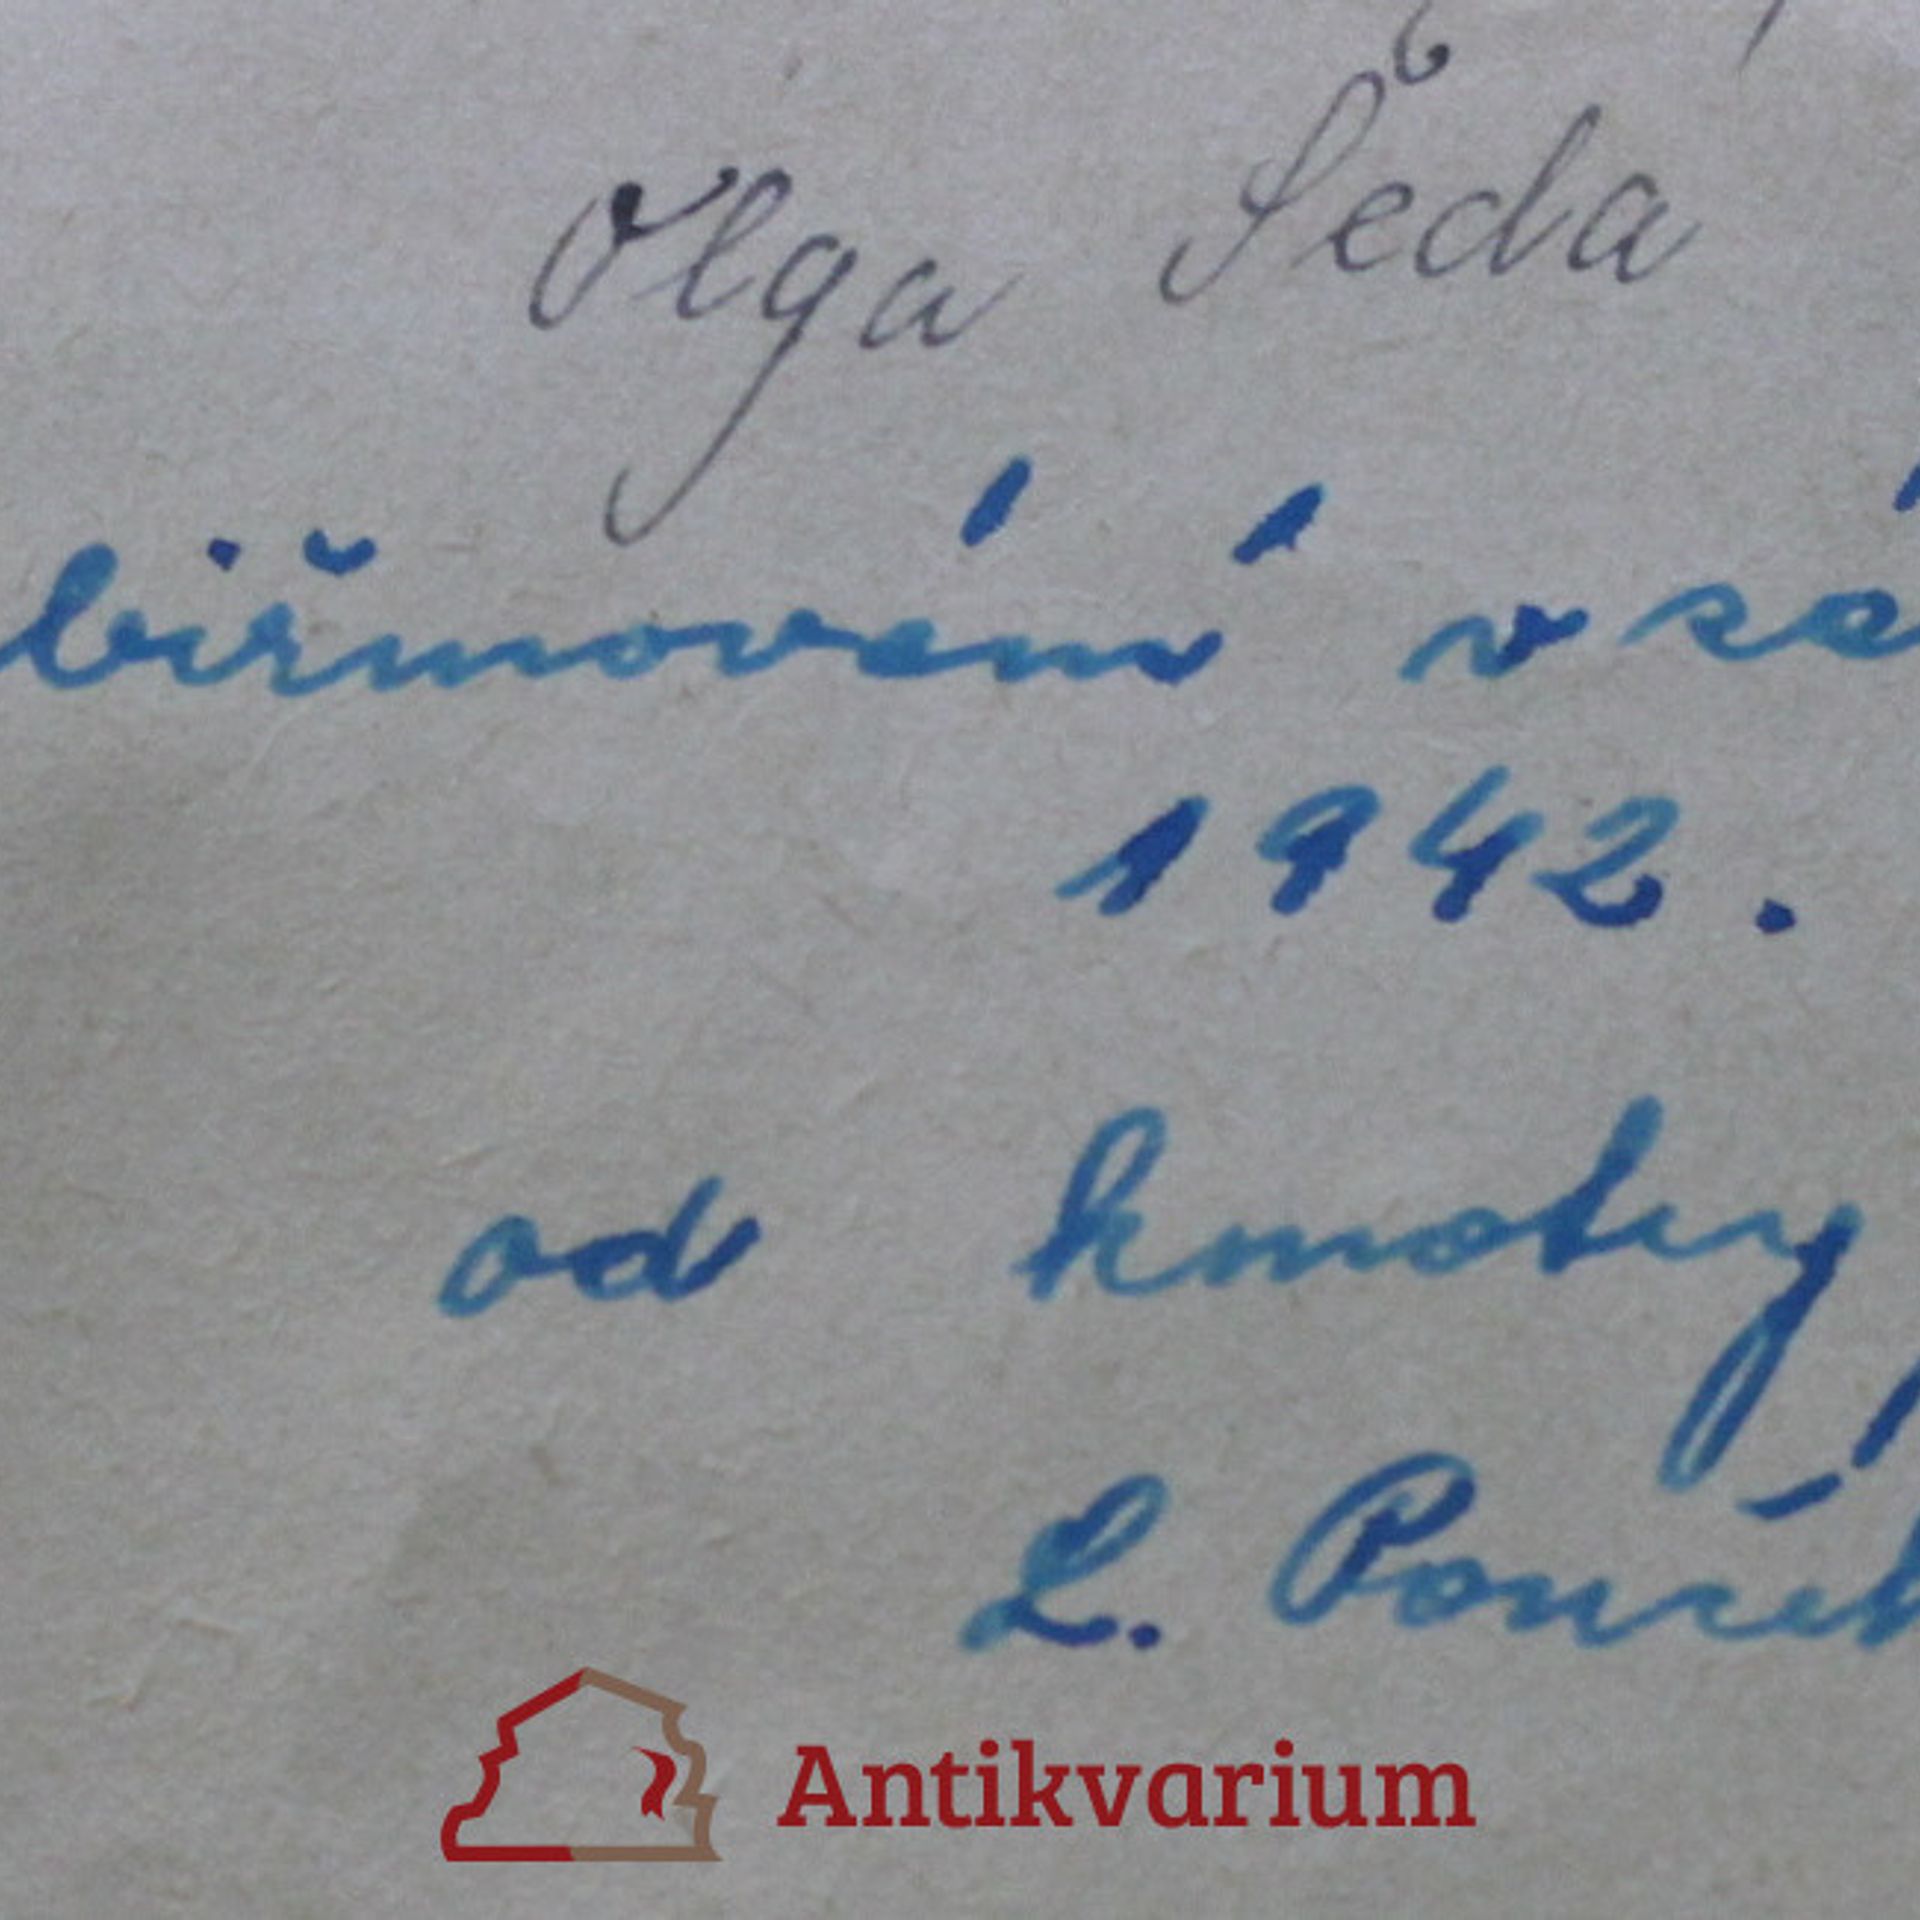 Olga Šedá
biřmování v zá
1942.
od kmotry
L. Pour
Antikvarium